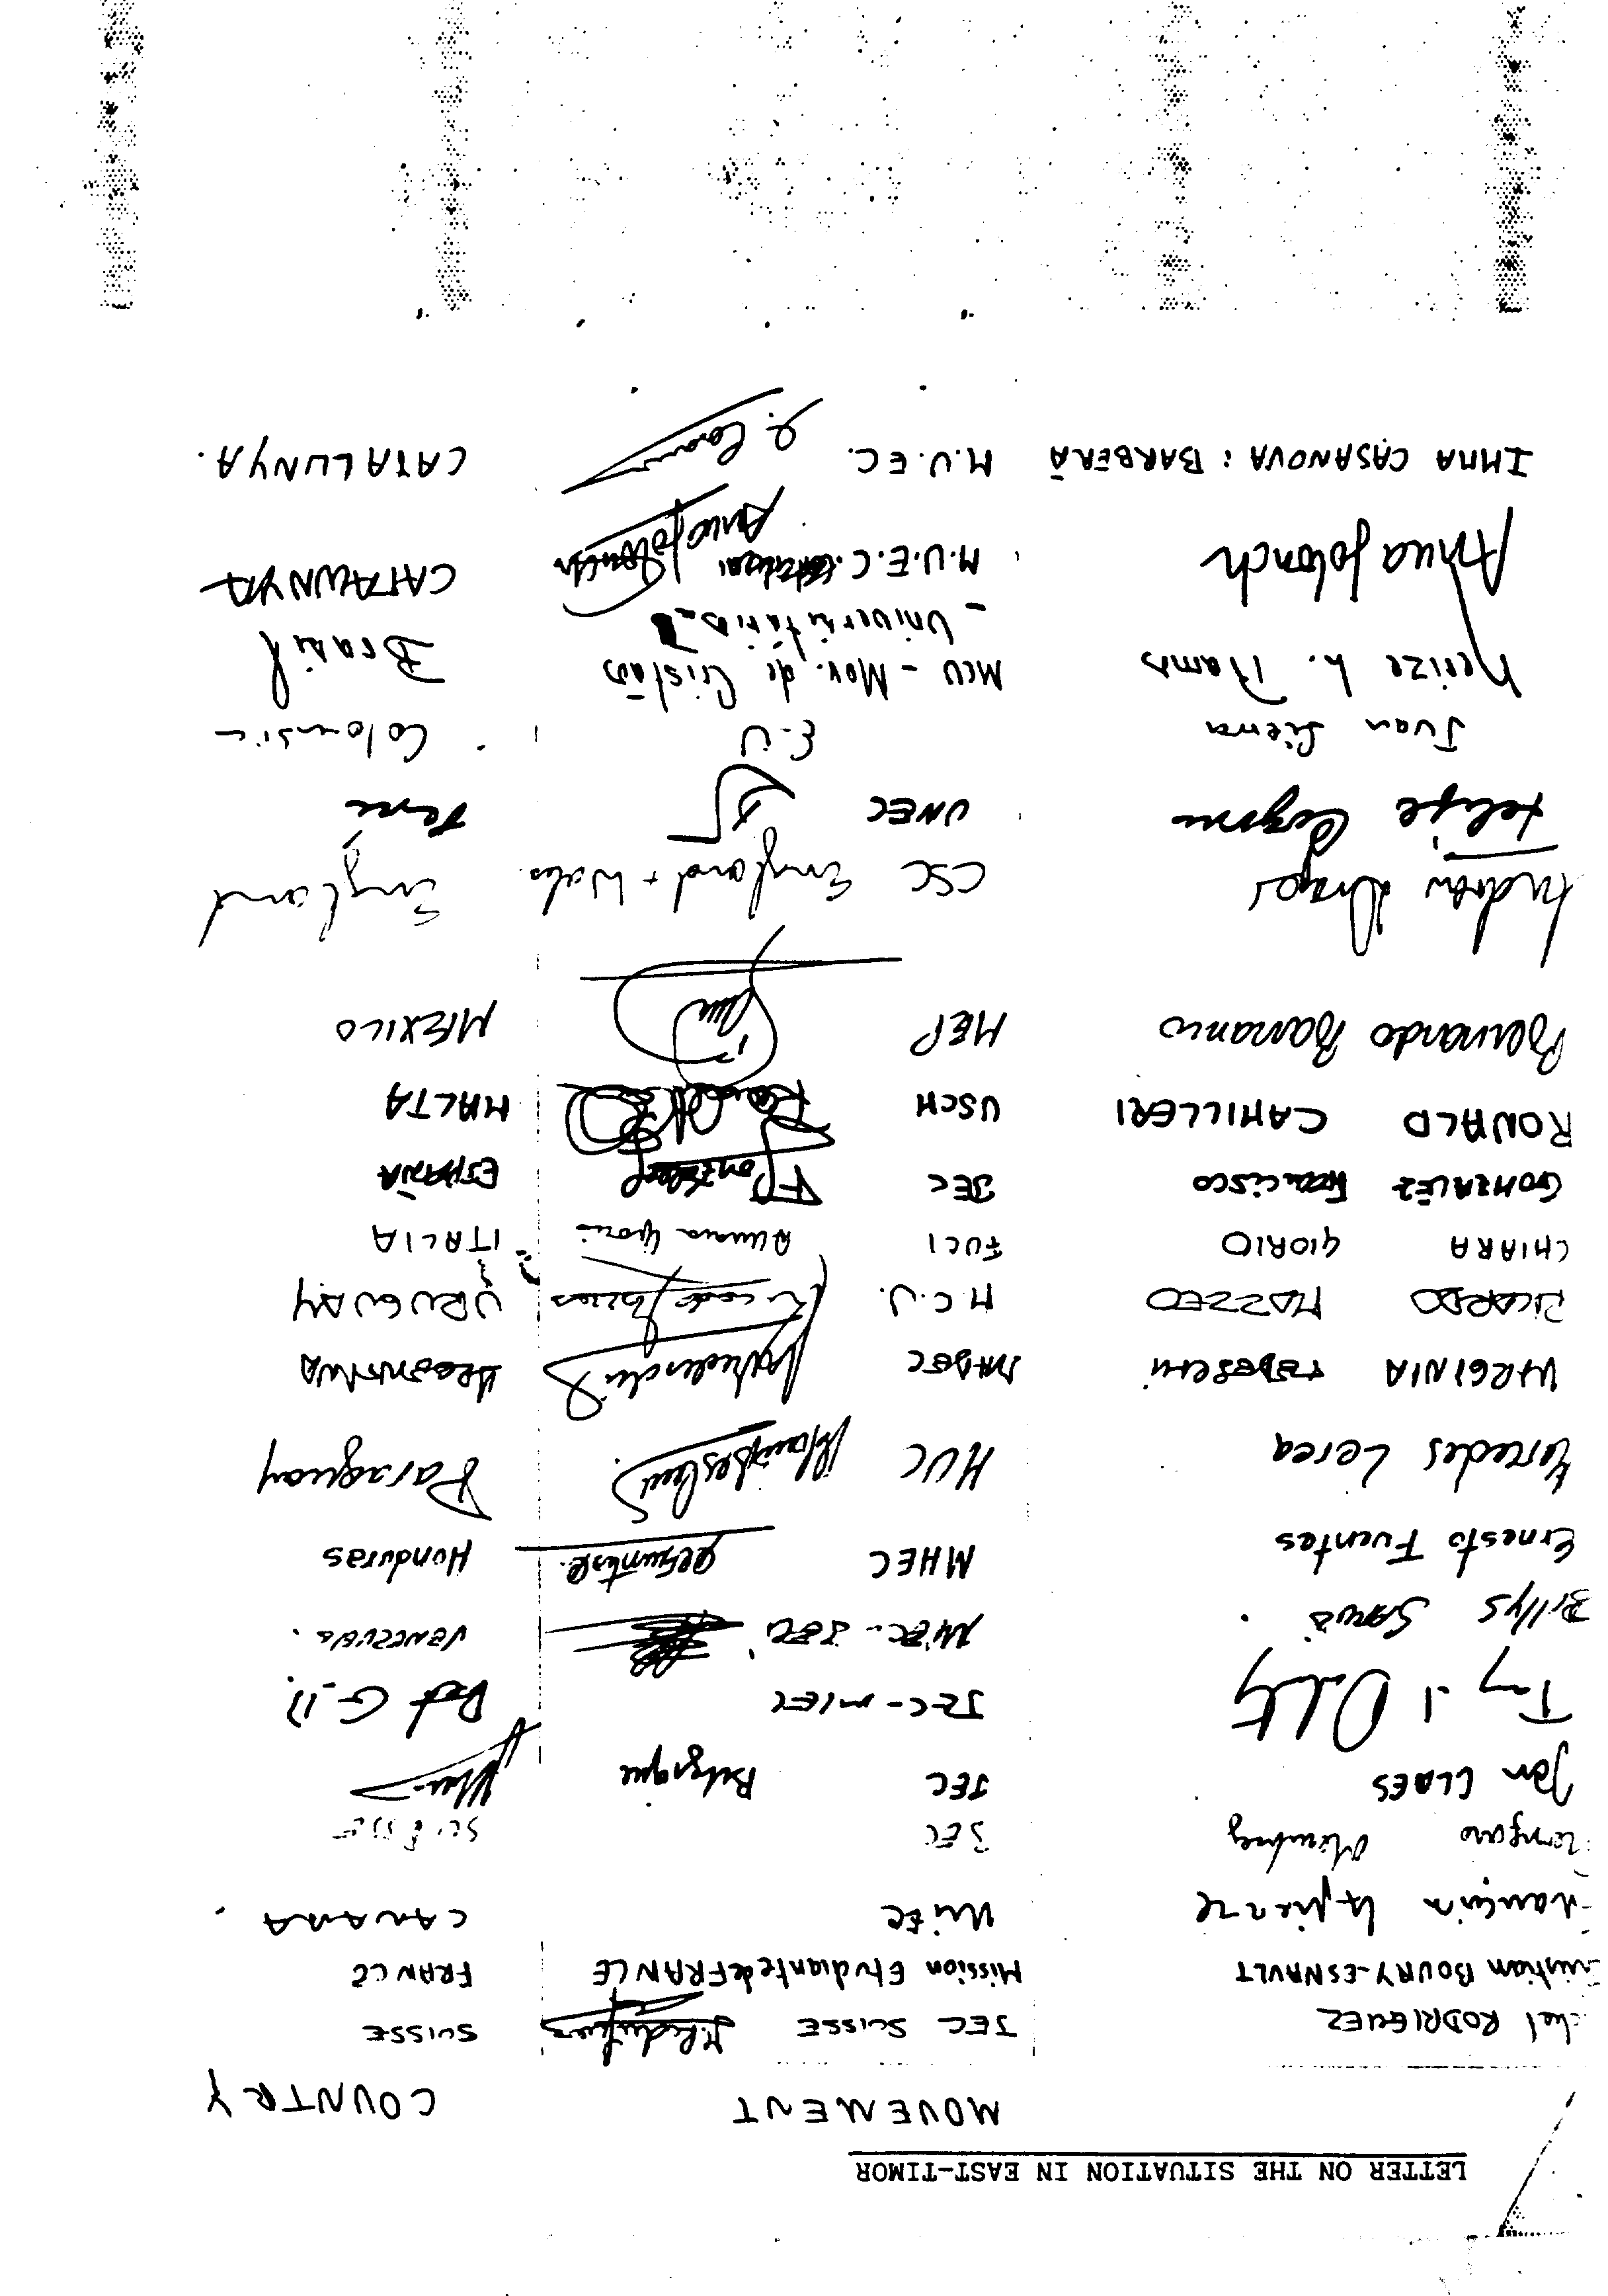 LETTER ON THE SITUATION IN EAST-TIMOR
MOVEMENT COUNTRY
RODRIGUEZ JEC SUISSE SUISSE
BOURY-ESNAULT Mission Etudiante de FRANCE FRANCE
CANADA.
JEC SUISSE
Jan CLAES JEC Belgique
JEC-MIEC
Billys MIEC-JECI VENEZUELA.
Ernesto Fuentes MHEC Honduras
Mercedes Lerea MUC Paraguay
VIRGINIA TEDESCHI ARGENTINA
RICARDO MAZZEO M.C.U. URUGUAY
CHIARA GIORIO FUCI ITALIA
GONZALEZ Francisco JEC ESPAÑA
RONALD CAMILLERI USCM MALTA
Bernardo Barranco MEP MEXICO
Andrew CSC England + Wales England
Felipe UNEC Perú
Juan Sierra E.U Colombia
Nerize L. Ramos MCU - Mov. de Cristãos Brasil
- Universitários -
Anna Jolonch M.U.E.C. CATALUNYA
IMMA CASANOVA i BARBERÀ M.U.E.C. CATALUNYA.